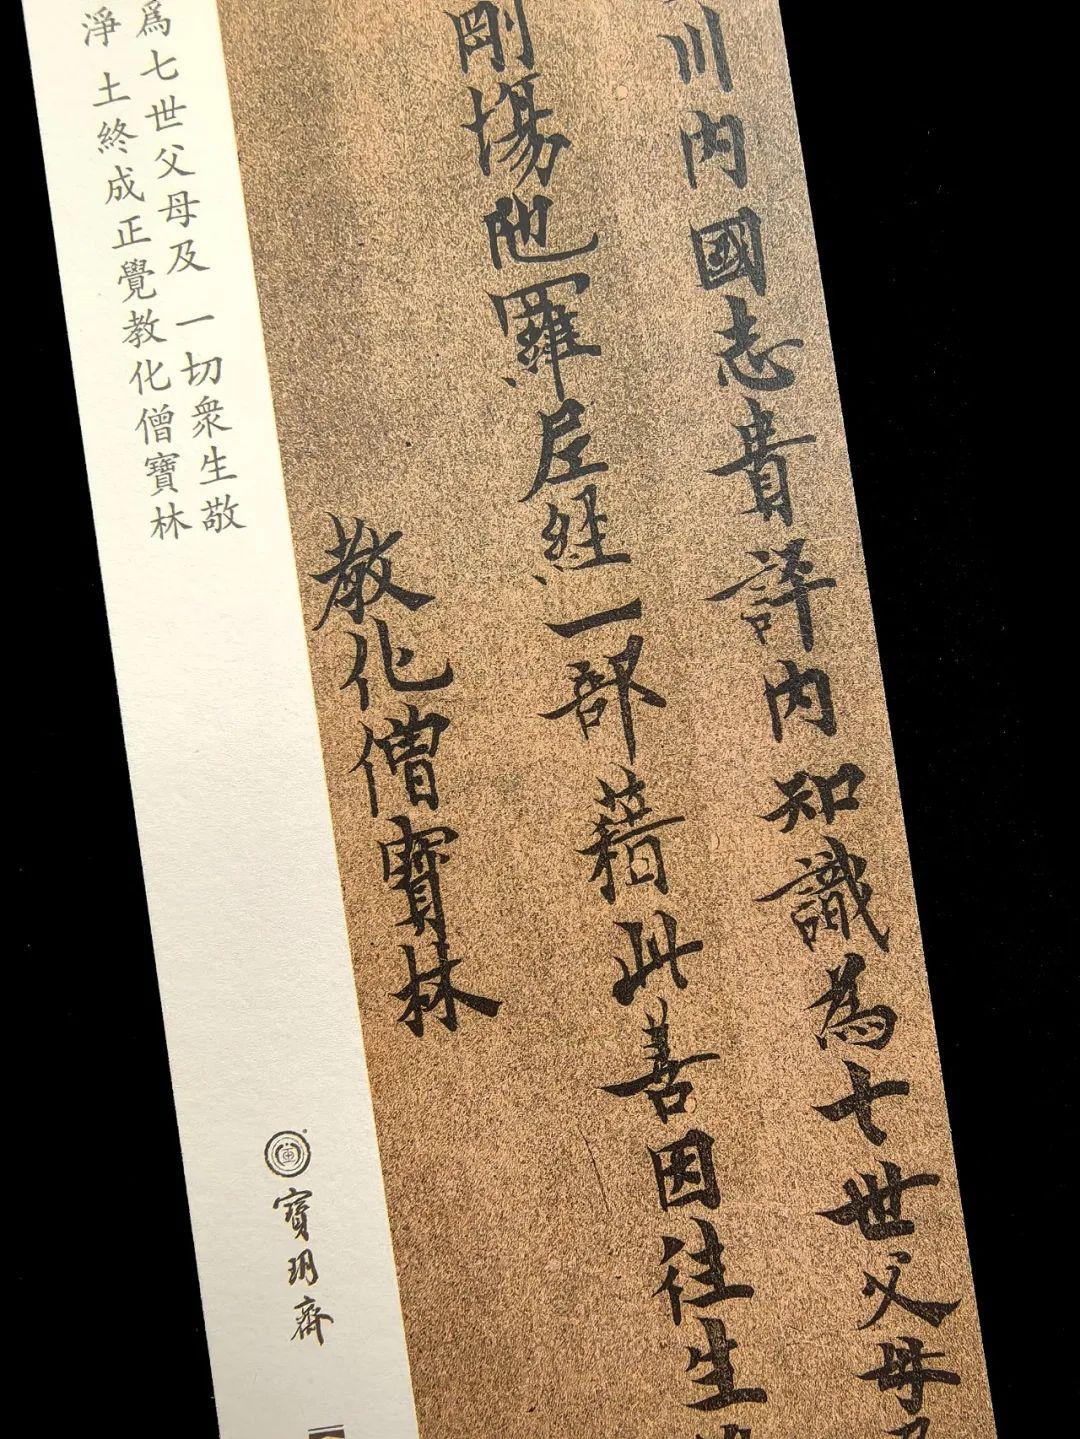 川内國志貴評内知識為七世父母
剛場陁羅尼經一部藉此善因往生
教化僧寶林
爲七世父母及一切衆生敬
淨土終成正覺教化僧寶林
寶玥齋